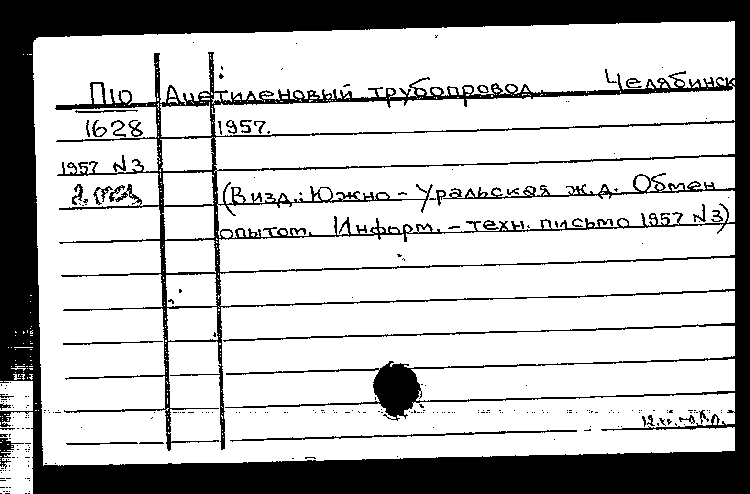 П10 Ацетиленовый трубопровод. Челябинск
1628 1957.
1957 N3
(В изд.: Южно-Уральская ж.д. Обмен
опытом. Информ.-техн. письмо 1957 N3)